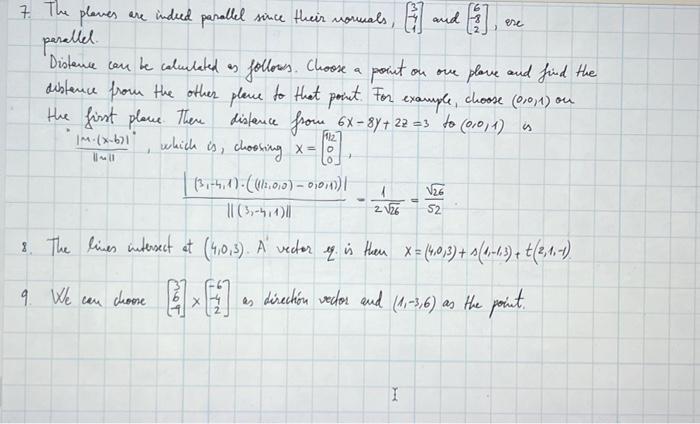 7. The planes are indeed parallel since their normals, [3 -4 1] and [6 -8 2], are
parallel.
Distance can be calculated as follows. Choose a point on one plane and find the
distance from the other plane to that point. For example, choose (0,0,1) on
the first plane. Then distance from 6x-8y+2z=3 to (0,0,1) is
"|n·(x-b)| / ||n||", which is, choosing x = [1/2 0 0],
|(3,-4,1)·((1/2,0,0)-0,0,1))| / ||(3,-4,1)|| = 1 / 2√26 = √26 / 52.
8. The lines intersect at (4,0,3). A vector eq. is then x=(4,0,3)+s(1,-1,3)+t(2,1,-1)
9. We can choose [3 6 -9] × [-6 -4 2] as direction vector and (1,-3,6) as the point.